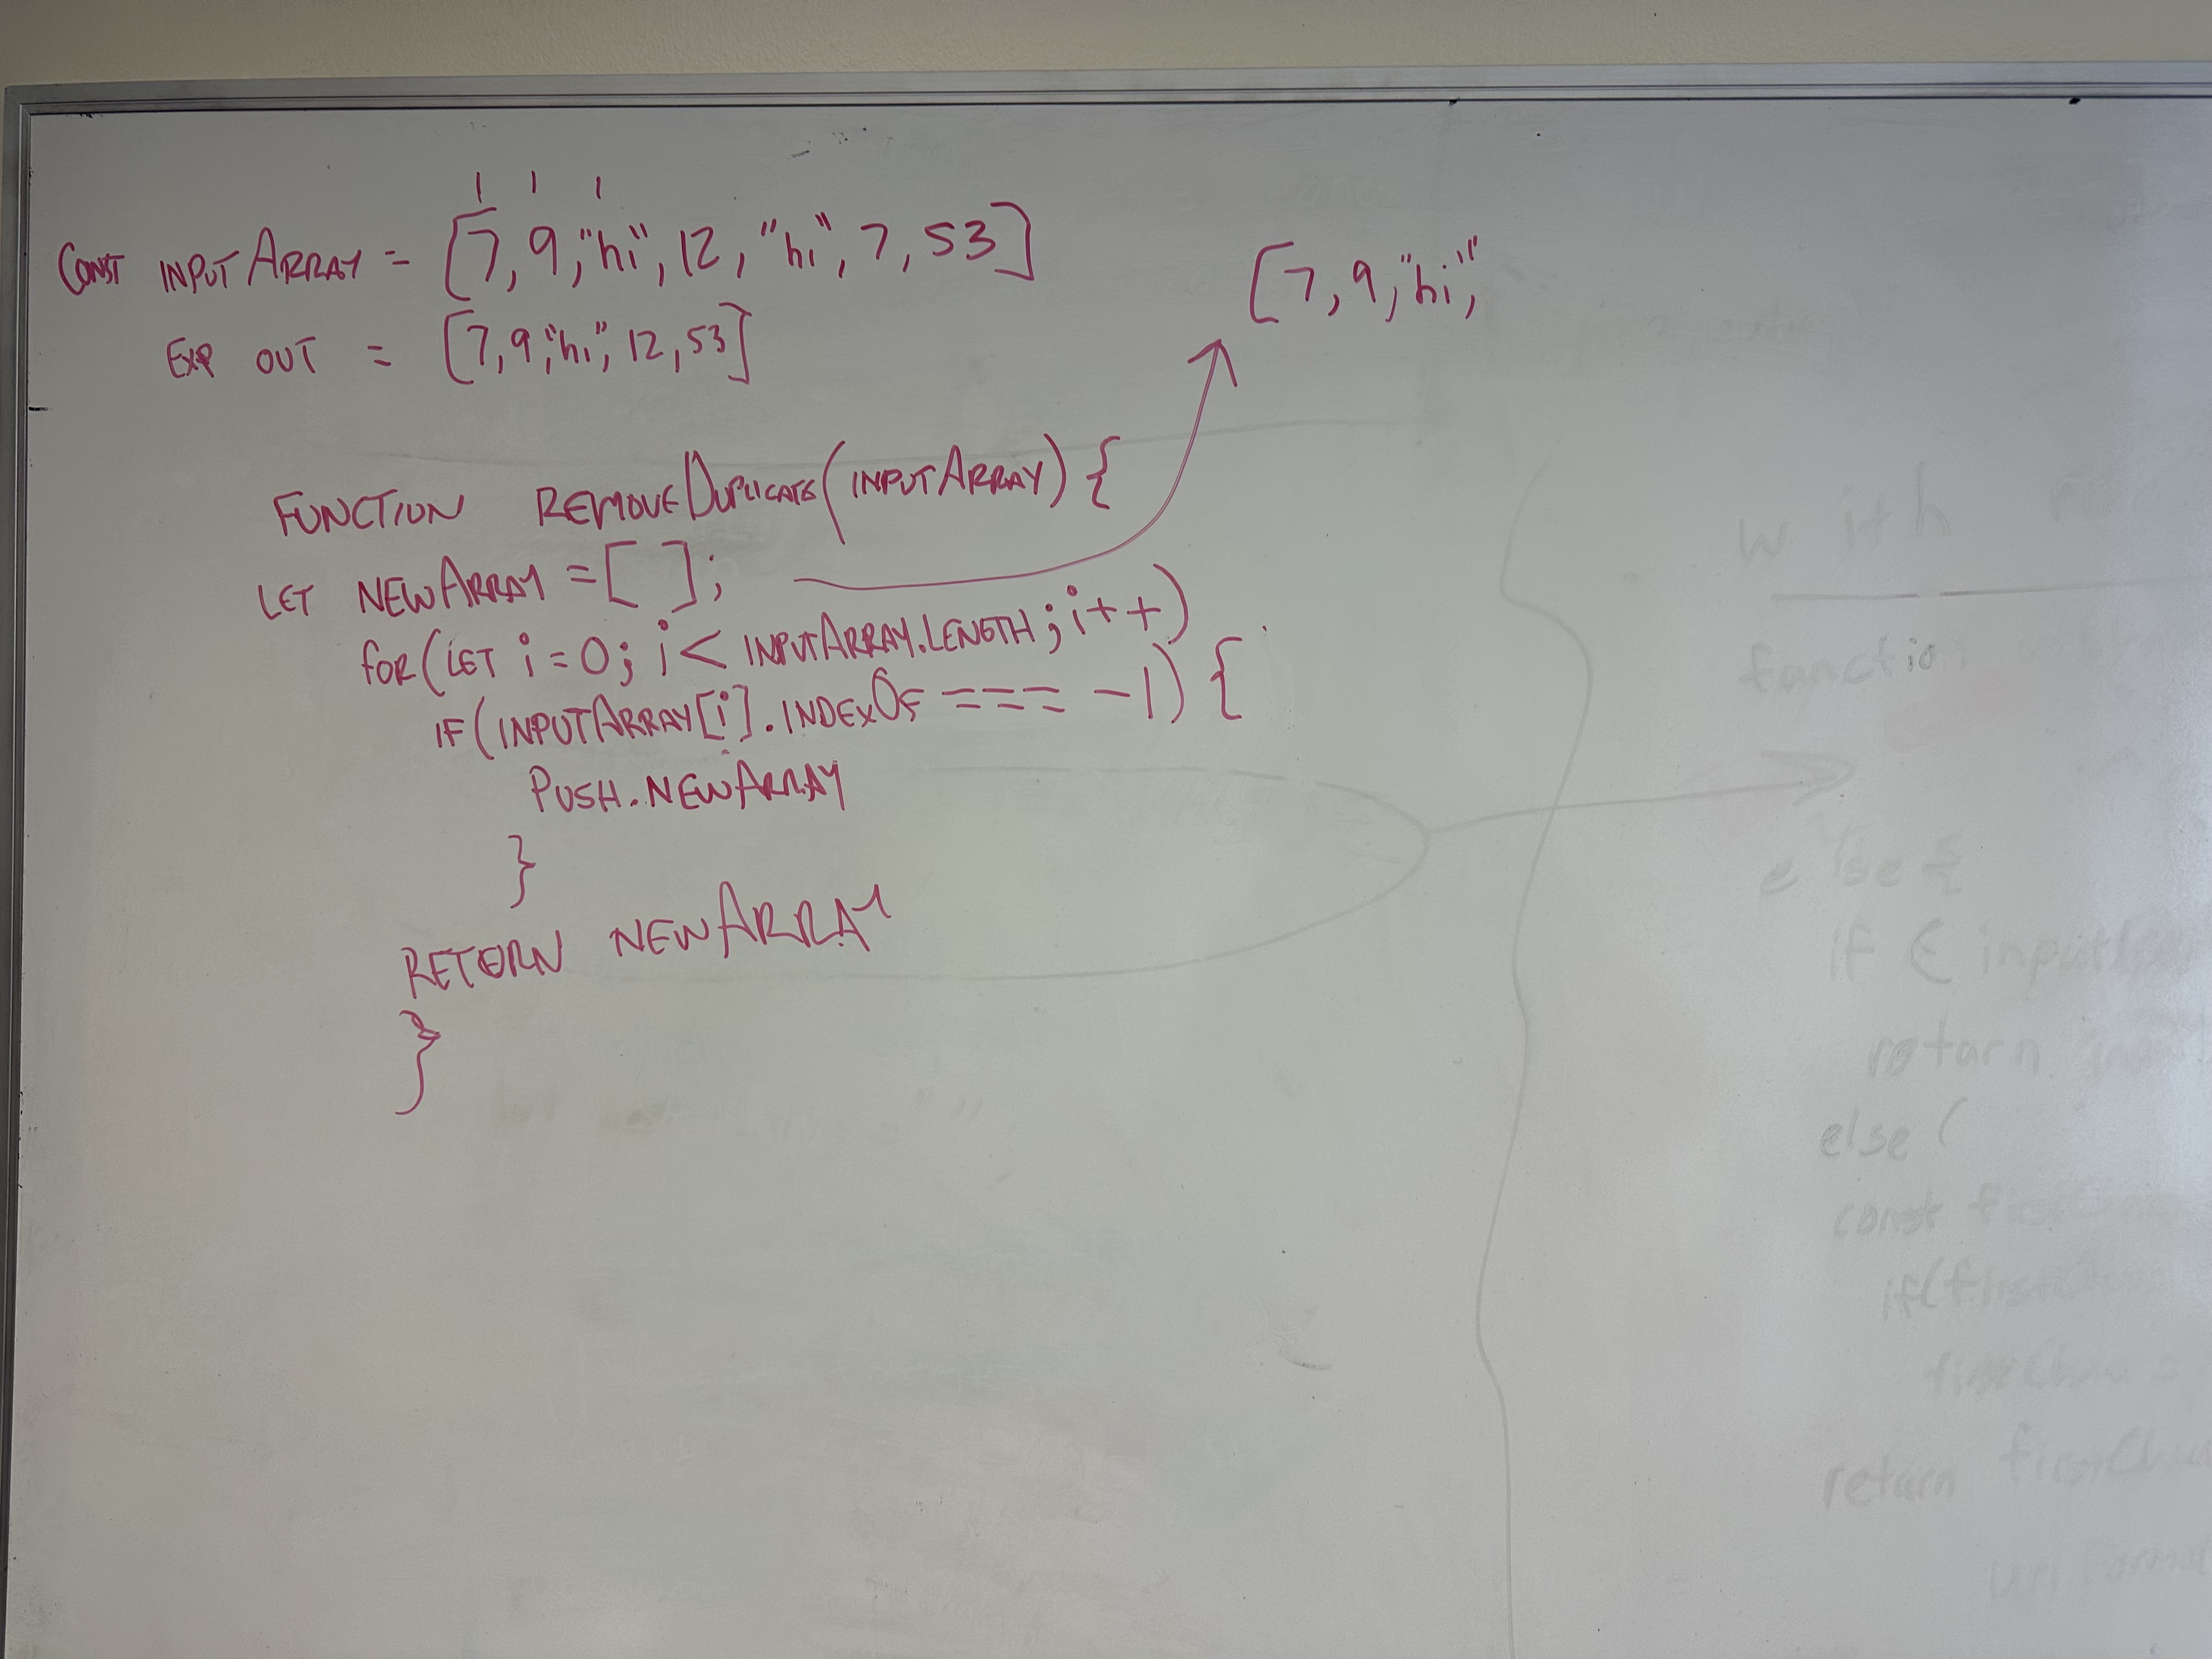 I I I
CONST INPUTARRAY = [7, 9, "hi", 12, "hi", 7, 53]
EXP OUT = [7, 9, "hi", 12, 53]
[7, 9, "hi",
FUNCTION REMOVEDUPLICATE(INPUTARRAY) {
LET NEWARRAY = [ ];
for(LET i = 0; i < INPUTARRAY.LENGTH; i++)
IF(INPUTARRAY[i].INDEXOF === -1) {
PUSH.NEWARRAY
}
RETURN NEWARRAY
}
with
function
else {
if
return
else (
const
return